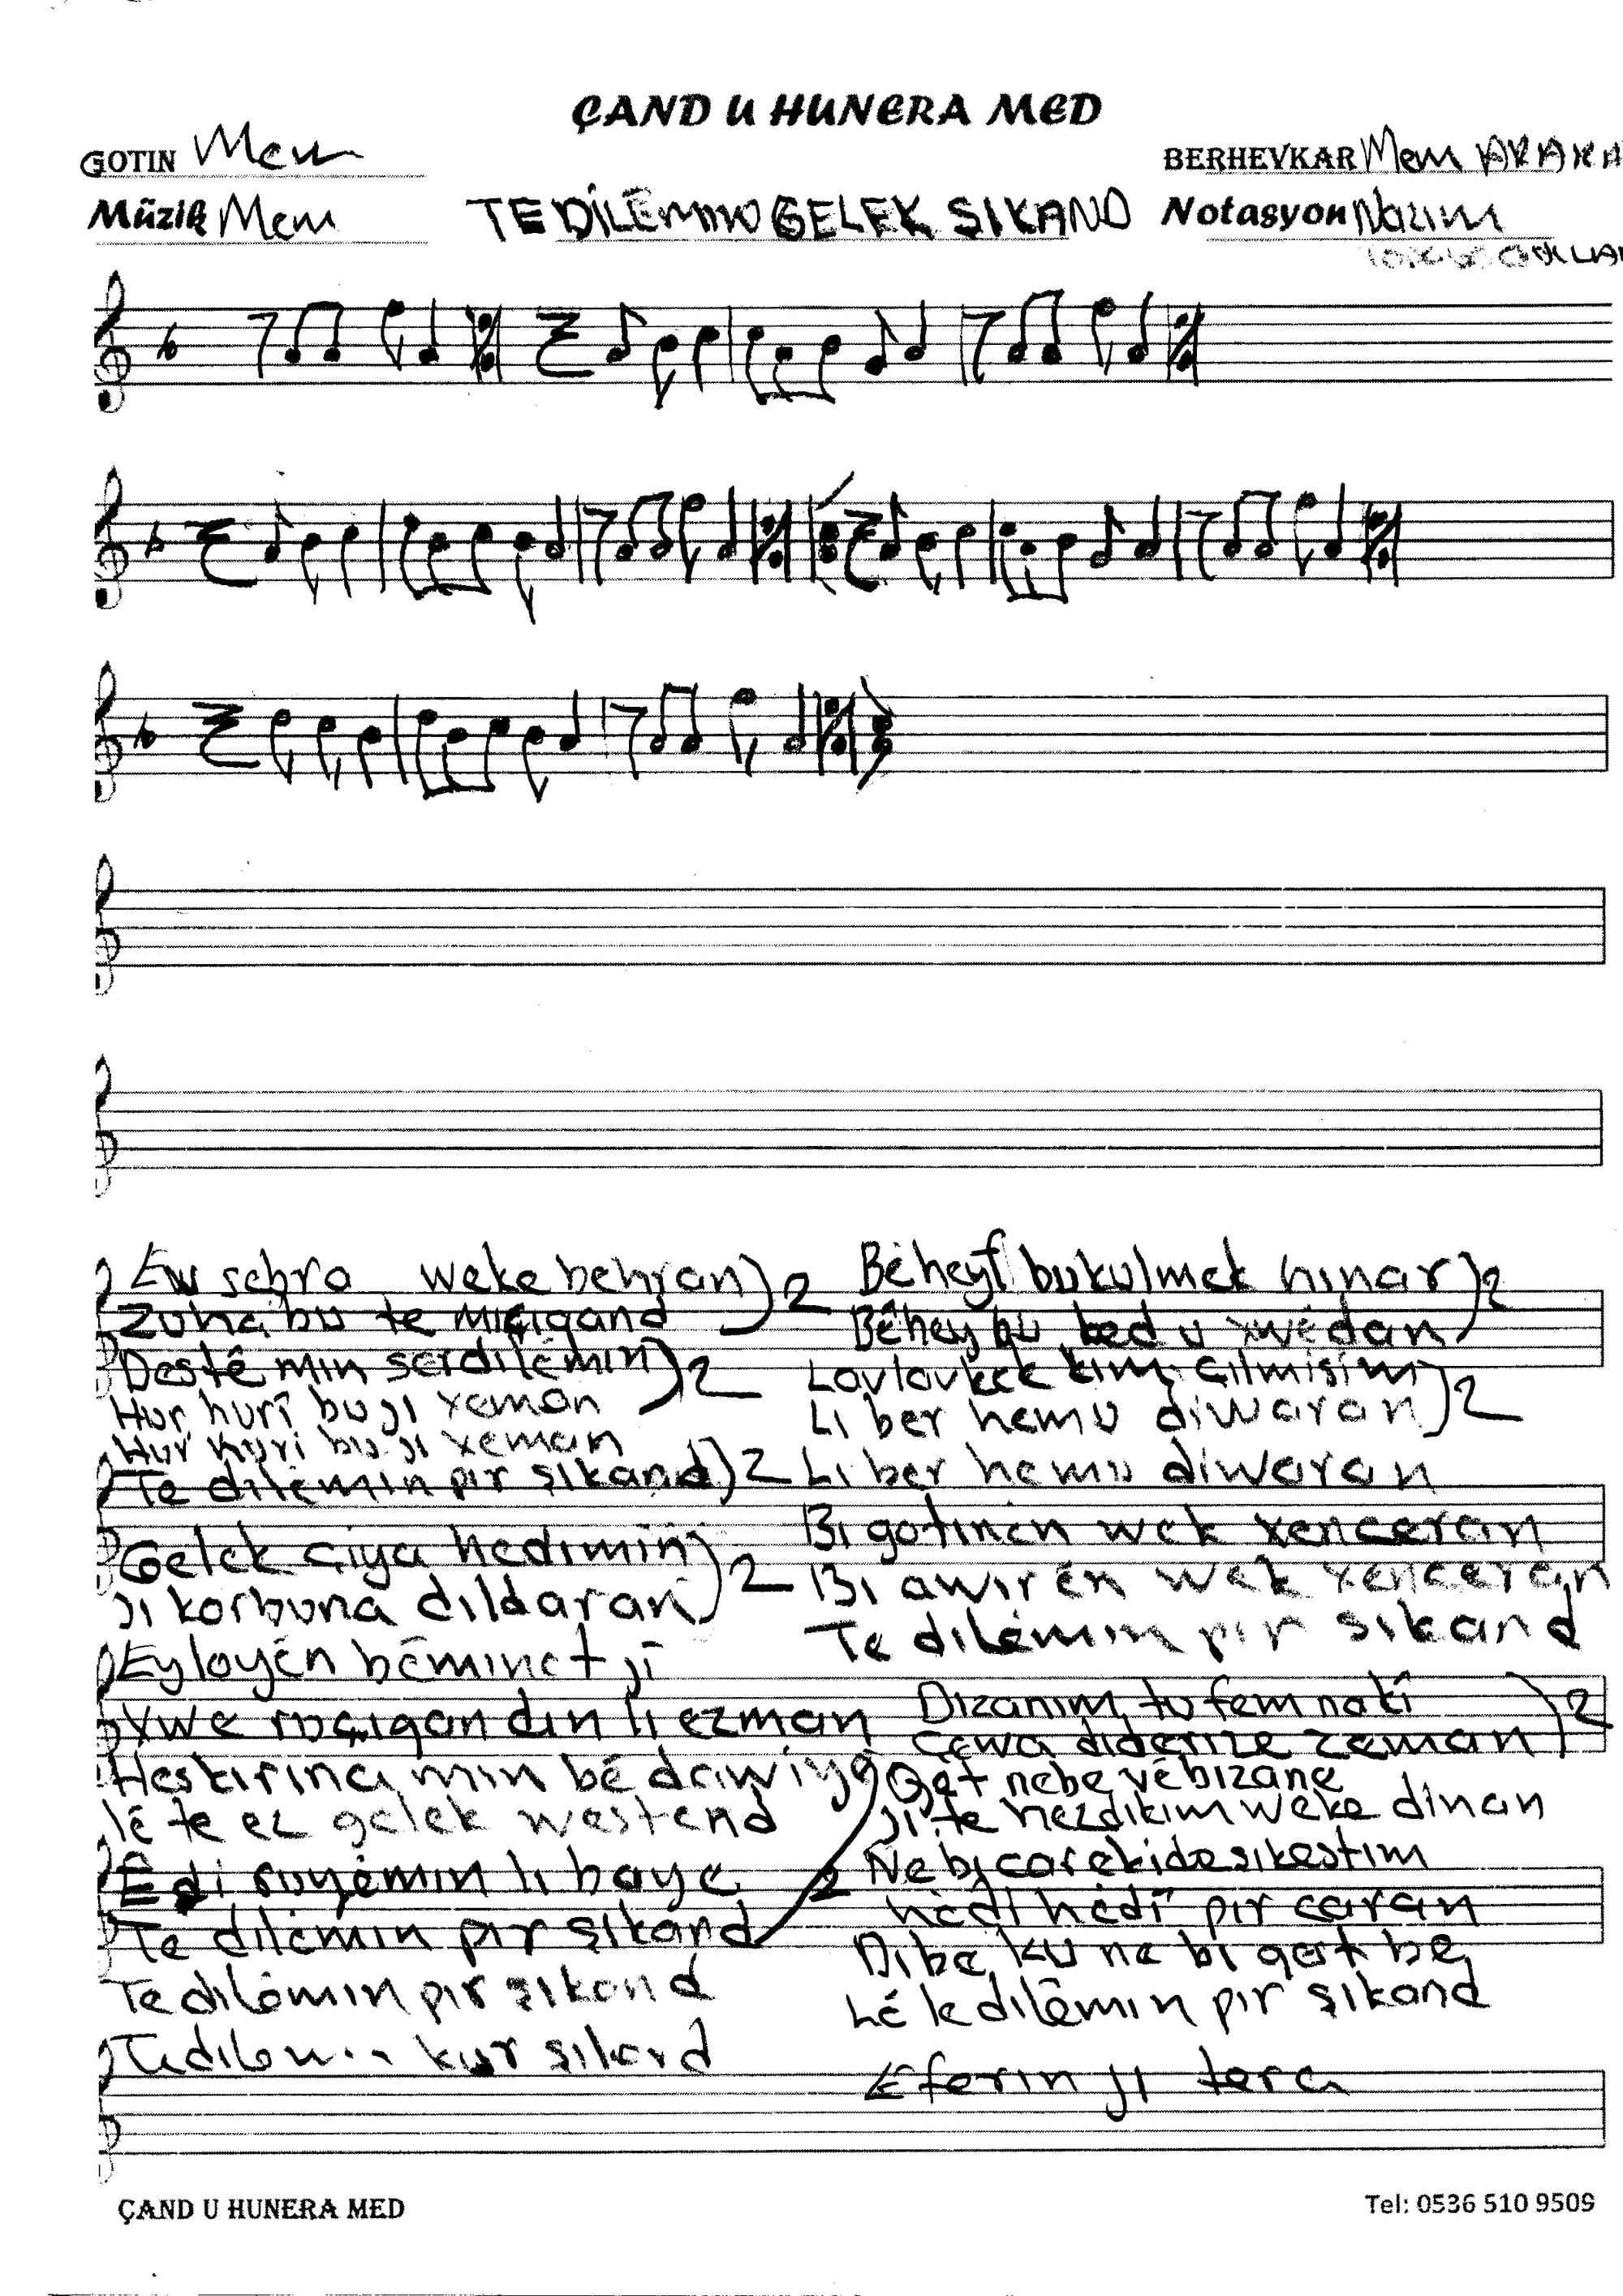 ÇAND U HUNERA MED
GOTIN Mem
BERHEVKAR Mem ARARA
Müzik Mem
TE DİLÊ MIN GELEK ŞIKAND
Notasyon Nazım
Ew sebra weke behran ) 2
Zuha bu te miçiqand
Destê min ser dilêmin ) 2
Hur hurî bu ji xeman
Hur huri bu ji xeman
Te dilêmin pir şikand ) 2
Gelek çiya hedimîn ) 2
ji korbuna dildaran
Ey loyên bêminet ji
xwe ro çiqandin li ezman
Heskirina min bê dawiye
lê te ez gelek westand
Edi suyêmin li baye
Te dilêmin pir şikand 2
Te dilêmin pir şikand
Te dilêmin kur şikand
Bêheyf bukulmek hinar ) 2
Bêhey bu ked u xwêdan
Lavlavkek kim çilmisîm ) 2
Li ber hemu diwaran
Li ber hemu diwaran
Bi gotinên wek xenceran
Bi awirên wek xenceran
Te dilêmin pir şikand
Dizanim tu fem nakî ) 2
Çewa diderize zeman
Qet nebe vê bizane
ji te hezdikim weke dînan
Ne bi carekide sikestim
hêdî hêdî pir caran
Dibe ku ne bi qest be
Lê te dilêmin pir şikand
Eferin ji tera
ÇAND U HUNERA MED
Tel: 0536 510 9509